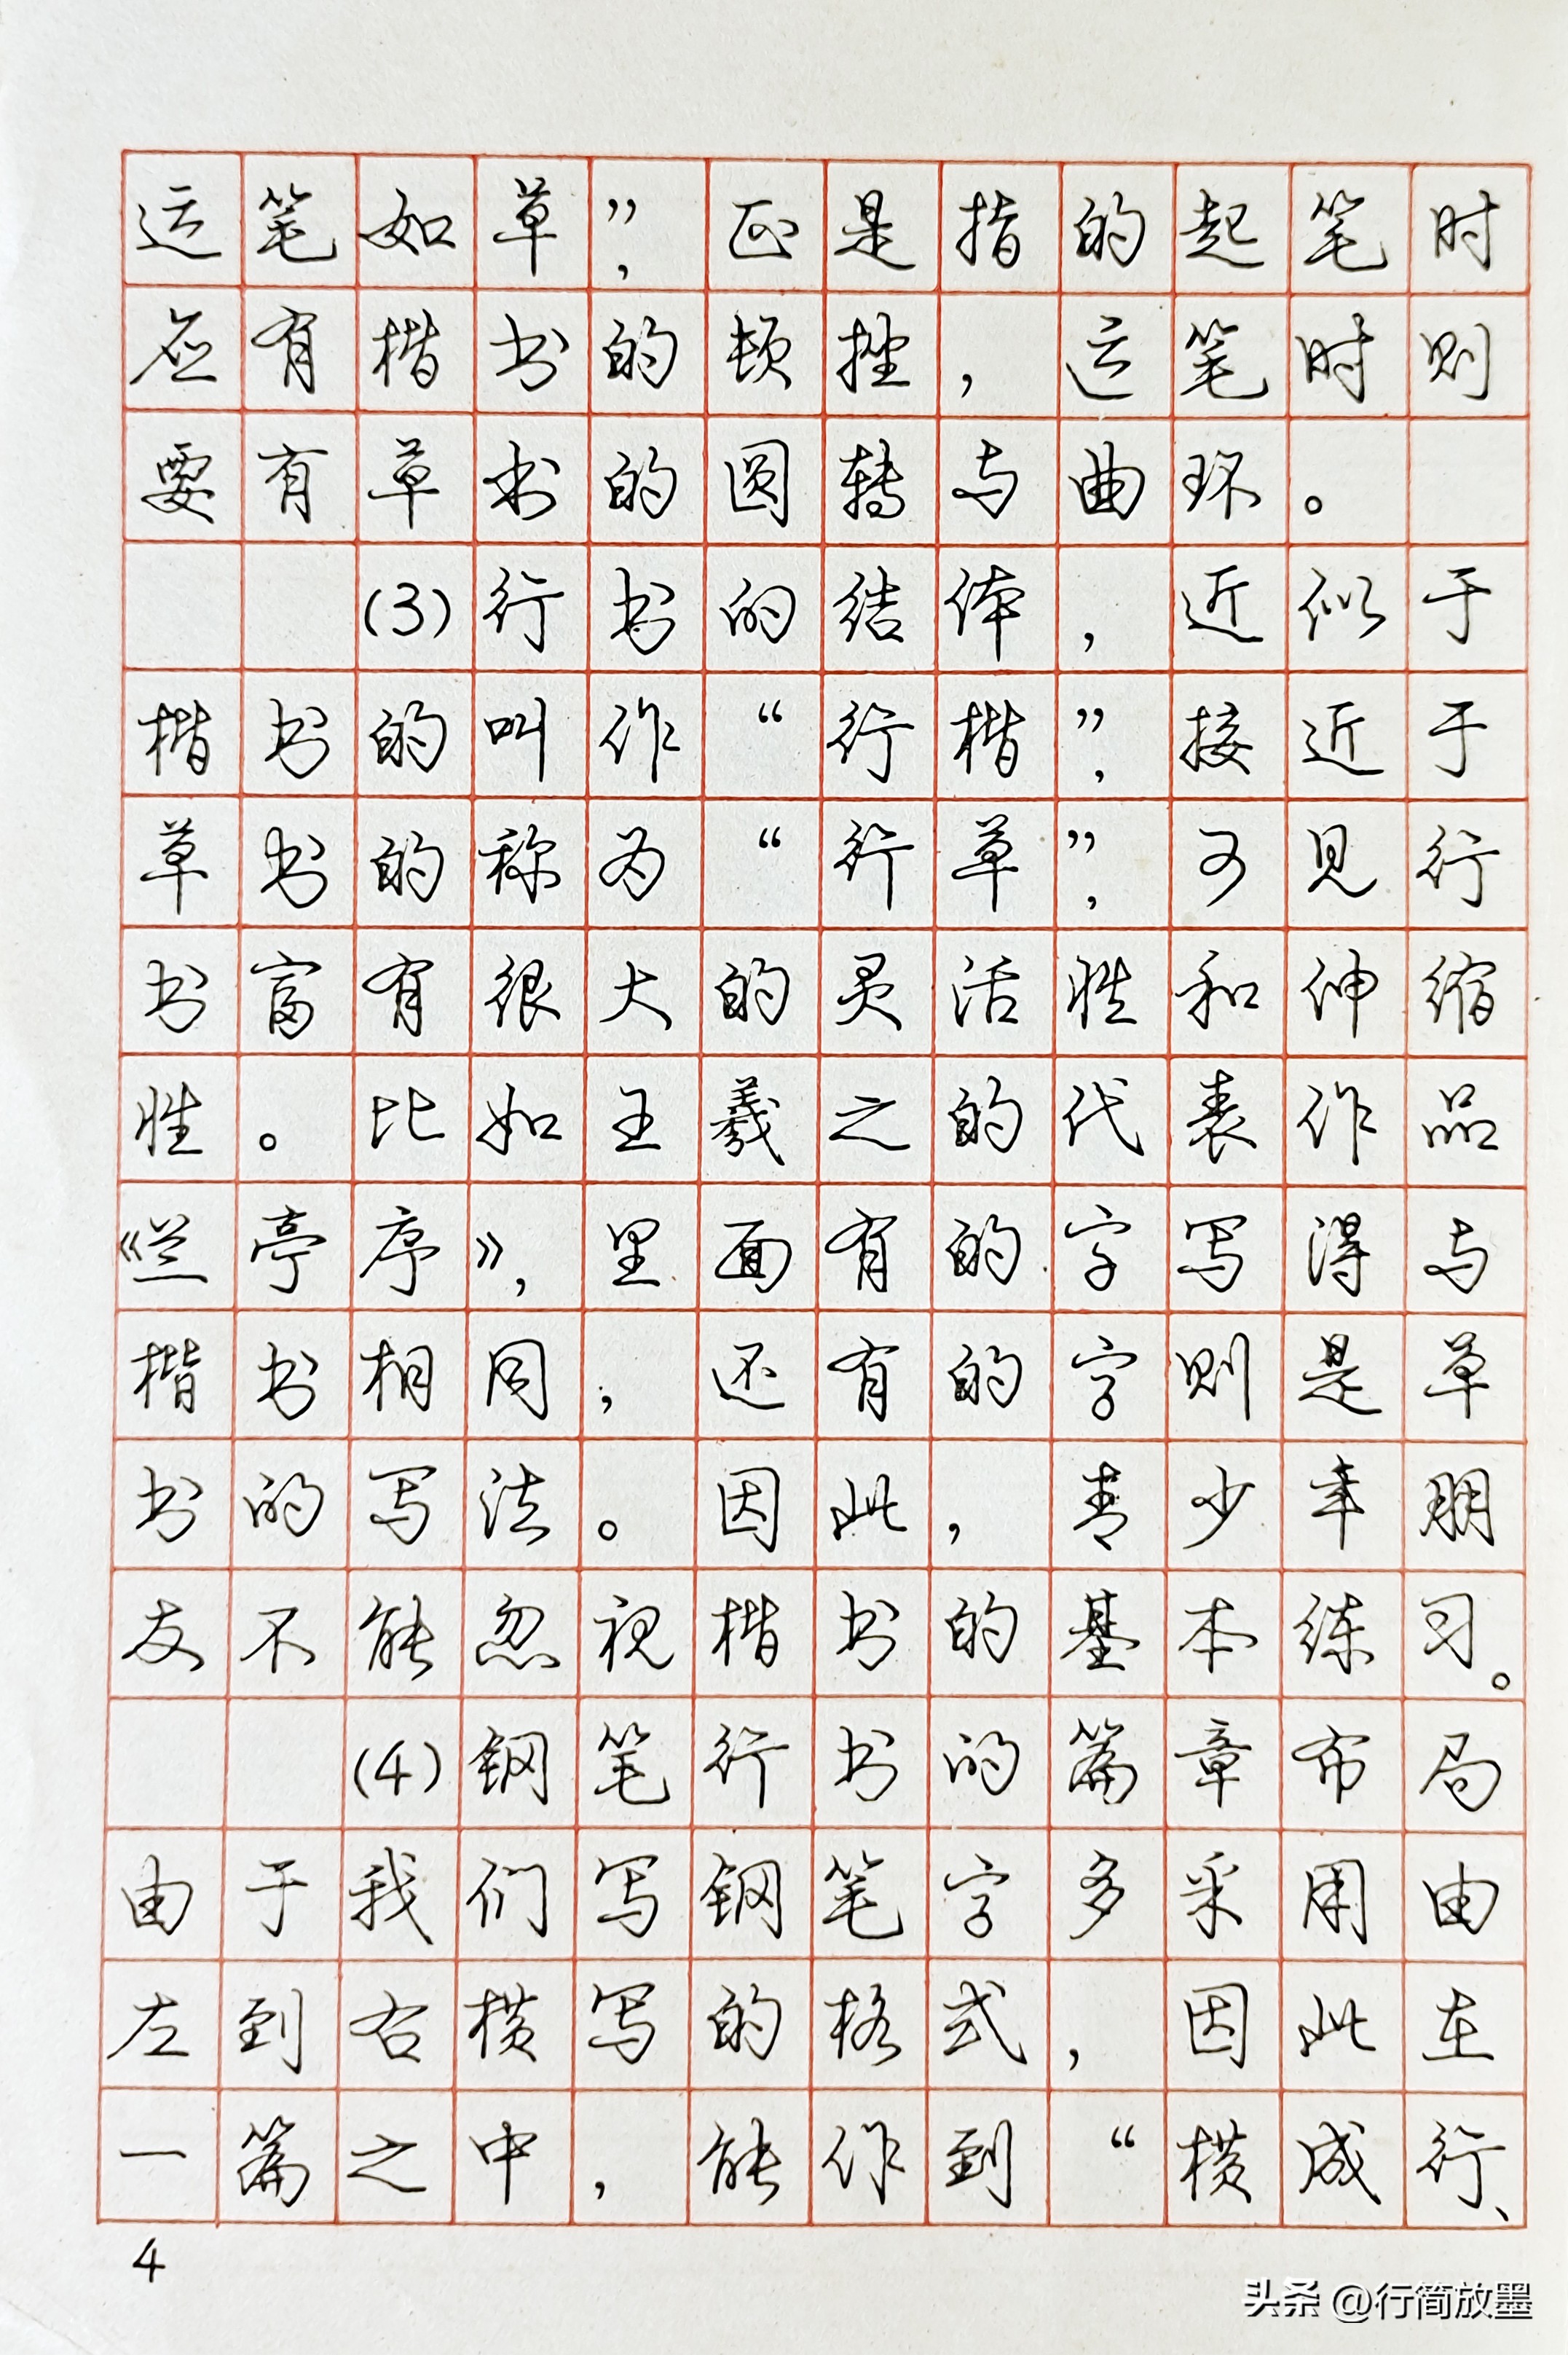 运笔如草”，正是指的起笔时
应有楷书的顿挫，运笔时则
要有草书的圆转与曲环。
(3)行书的结体，近似于
楷书的叫作“行楷”，接近于
草书的称为“行草”，可见行
书富有很大的灵活性和伸缩
性。比如王羲之的代表作品
《兰亭序》，里面有的字写得与
楷书相同，还有的字则是草
书的写法。因此，青少年朋
友不能忽视楷书的基本练习。
(4)钢笔行书的篇章布局
由于我们写钢笔字多采用由
左到右横写的格式，因此在
一篇之中，能作到“横成行、
4
头条 @行简放墨